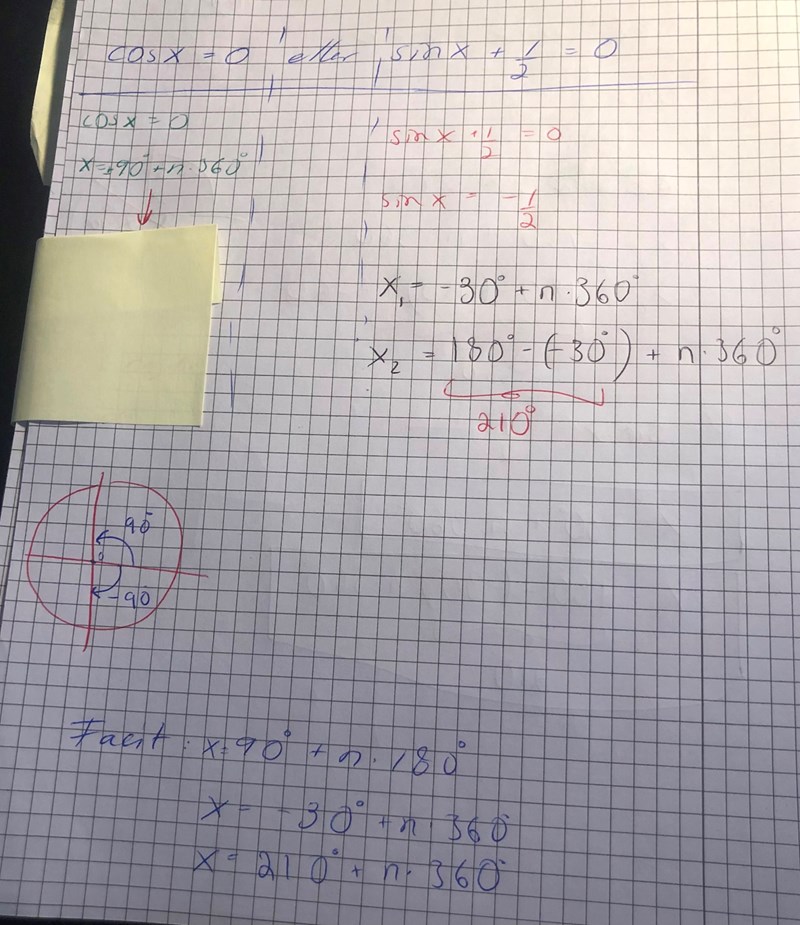 cos x = 0 eller sin x + 1/2 = 0
cos x = 0
x = ±90° + n · 360°
sin x + 1/2 = 0
sin x = -1/2
x₁ = -30° + n · 360°
x₂ = 180° - (-30°) + n · 360°
210°
90°
-90°
Facit: x = 90° + n · 180°
x = -30° + n · 360°
x = 210° + n · 360°